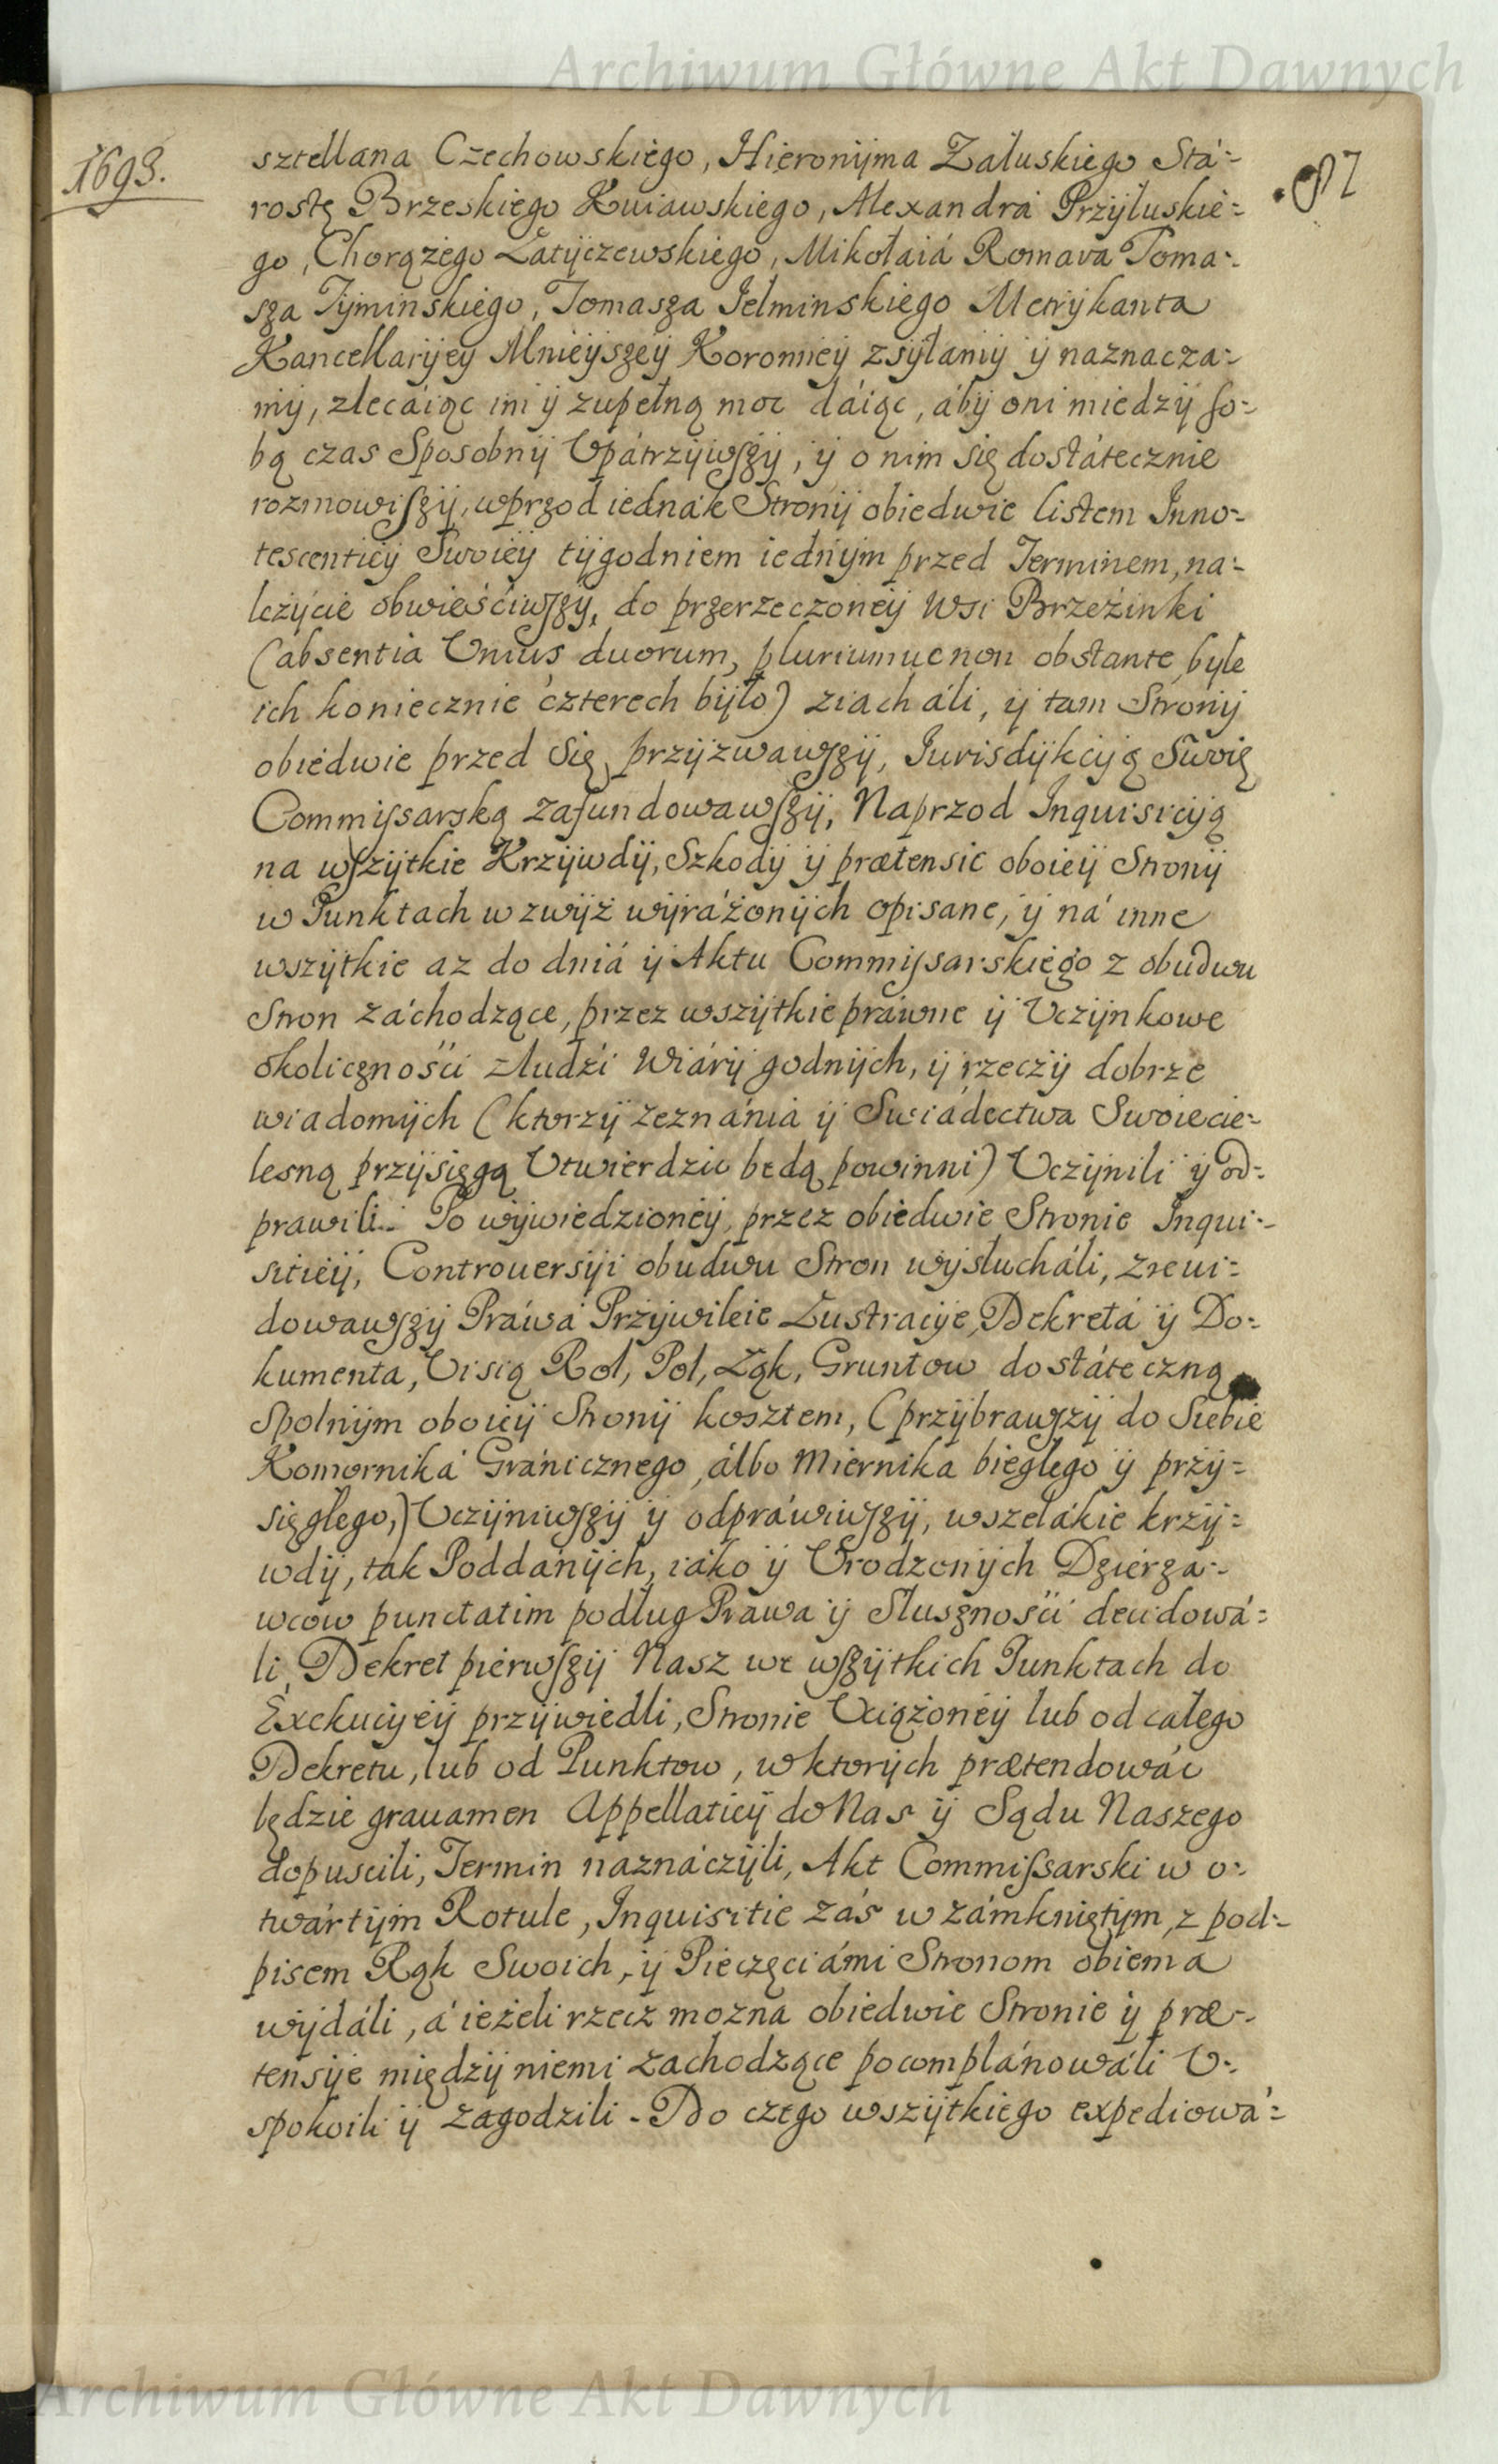 Archiwum Główne Akt Dawnych
1693.
87
sztellana Czechowskiego, Hieronyma Załuskiego Stá=
rostę Brzeskiego Kuiawskiego, Alexandra Przyłuskie=
go, Chorążego Łatyczewskiego, Mikołaiá Romana Toma=
sza Tyminskiego, Tomasza Jelminskiego Metrykanta
Kancellaryey Mnieyszey Koronney zsyłamy y naznacza=
my, zlecáiąc im y zupełną moc dáiąc, áby oni miedzy so=
bą czas Sposobny Upátrzywszy, y o nim się dostátecznie
rozmowiszy, wprzod iednák Strony obiedwie listem Inno=
tescentiey Swoiey tygodniem iednym przed Terminem, na=
leżycie obwieściwszy, do przerzeczoney Wsi Brzeżinki
(absentia Unius duorum, pluriumue non obstante, byle
ich koniecznie czterech było) ziacháli, y tam Strony
obiedwie przed Się przyzwawszy, Iurisdykcyą Swoię
Commissarską zafundowawszy, Naprzod Inquisicyą
na wszytkie Krzywdy, Szkody y prætensie oboiey Strony
w Punktach wzwyż wyráżonych opisane, y ná inne
wszytkie az do dniá y Aktu Commissarskiego z obudwu
Stron záchodzące, przez wszytkie práwne y Uczynkowe
okoliczności zludźi Wiáry godnych, y rzeczy dobrze
wiadomych (ktorzy zeznánia y Swiádectwa Swoie cie=
lesną przysięgą Utwierdzic bedą powinni) Uczynili y od=
prawili. Po wywiedzioney przez obiedwie Stronie Inqui=
sitiey, Controuersyi obudwu Stron wysłucháli, zreui=
dowawszy Práwa Przywileie Lustracye, Dekretá y Do=
kumenta, Uisią Rol, Pol, Łąk, Gruntow dostáteczną
Spolnym oboiey Strony kosztem, (przybrawszy do Siebie
Komorniká Gránicznego, álbo Miernika biegłego y przy=
sięgłego,) Uczyniwszy y odpráwiwszy, wszelákie krzy=
wdy, ták Poddánych, iáko y Urodzonych Dzierża=
wcow punctatim podług Prawa y Słuszności decidowá=
li, Dekret pierwszy Nasz we wszytkich Punktach do
Exekucyey przywiedli, Stronie Uciążoney lub od całego
Dekretu, lub od Punktow, wktorych prætendowác
będzie grauamen Appellatiey do Nas y Sądu Naszego
dopuscili, Termin naznáczyli, Akt Commissarski w o=
twártym Rotule, Inquisitie zás w zámkniętym, z pod=
pisem Rąk Swoich, y Pieczęciámi Stronom obiema
wydáli, á ieżeli rzecz można obiedwie Stronie y præ=
tensye między niemi zachodzące pocomplánowáli U=
spokoili y zagodzili. Do czego wszytkiego expediowá=
Archiwum Główne Akt Dawnych